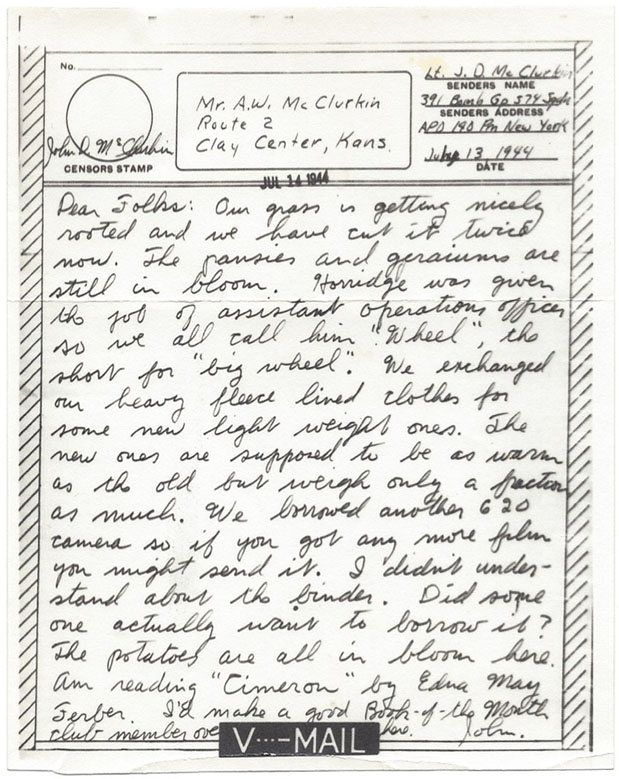 No.
John D. McClurkin
CENSORS STAMP
Mr. A.W. McClurkin
Route 2
Clay Center, Kans.
Lt. J. D. McClurkin
SENDERS NAME
391 Bomb Gp 574 Sqdn
SENDERS ADDRESS
APO 140 Pm New York
July 13, 1944
DATE
JUL 14 1944
Dear Folks: Our grass is getting nicely
rooted and we have cut it twice
now. The pansies and geraiums are
still in bloom. Horridge was given
the job of assistant operations officer
so we all call him "Wheel", the
short for "big wheel". We exchanged
our heavy fleece lined clothes for
some new light weight ones. The
new ones are supposed to be as warm
as the old but weigh only a fraction
as much. We borrowed another 620
camera so if you got any more film
you might send it. I didn't under-
stand about the binder. Did some
one actually want to borrow it?
The potatoes are all in bloom here.
Am reading "Cimeron" by Edna May
Ferber. I'd make a good Book-of-the Month
club member over here. John.
V···—MAIL